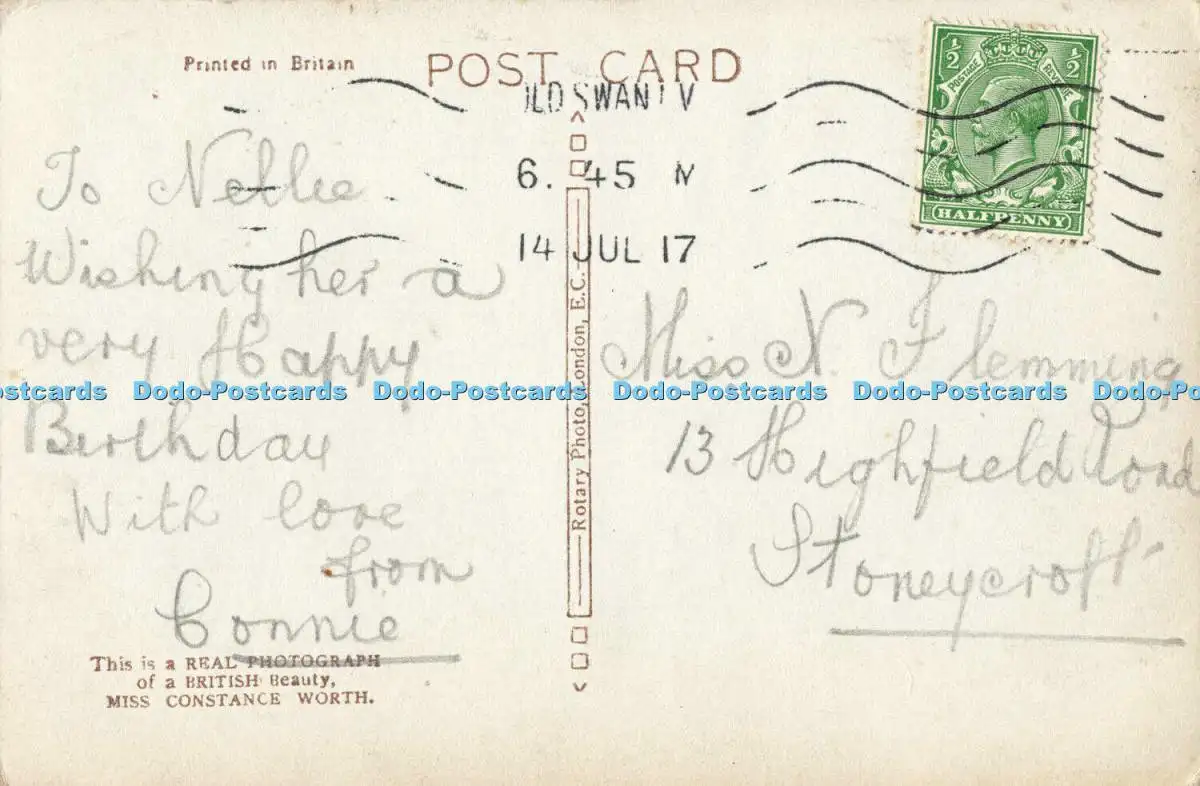 Printed in Britain
POST CARD
6. 45
14 JUL 17
½ ½
POSTAGE REVENUE
HALFPENNY
To Nellie
Wishing her a
very Happy
Birthday
With love
from
Connie
This is a REAL PHOTOGRAPH
of a BRITISH Beauty,
MISS CONSTANCE WORTH.
Rotary Photo, London, E.C.
Miss N. Flemming
13 Highfield Road
Stoneycroft
Dodo-Postcards Dodo-Postcards Dodo-Postcards Dodo-Postcards